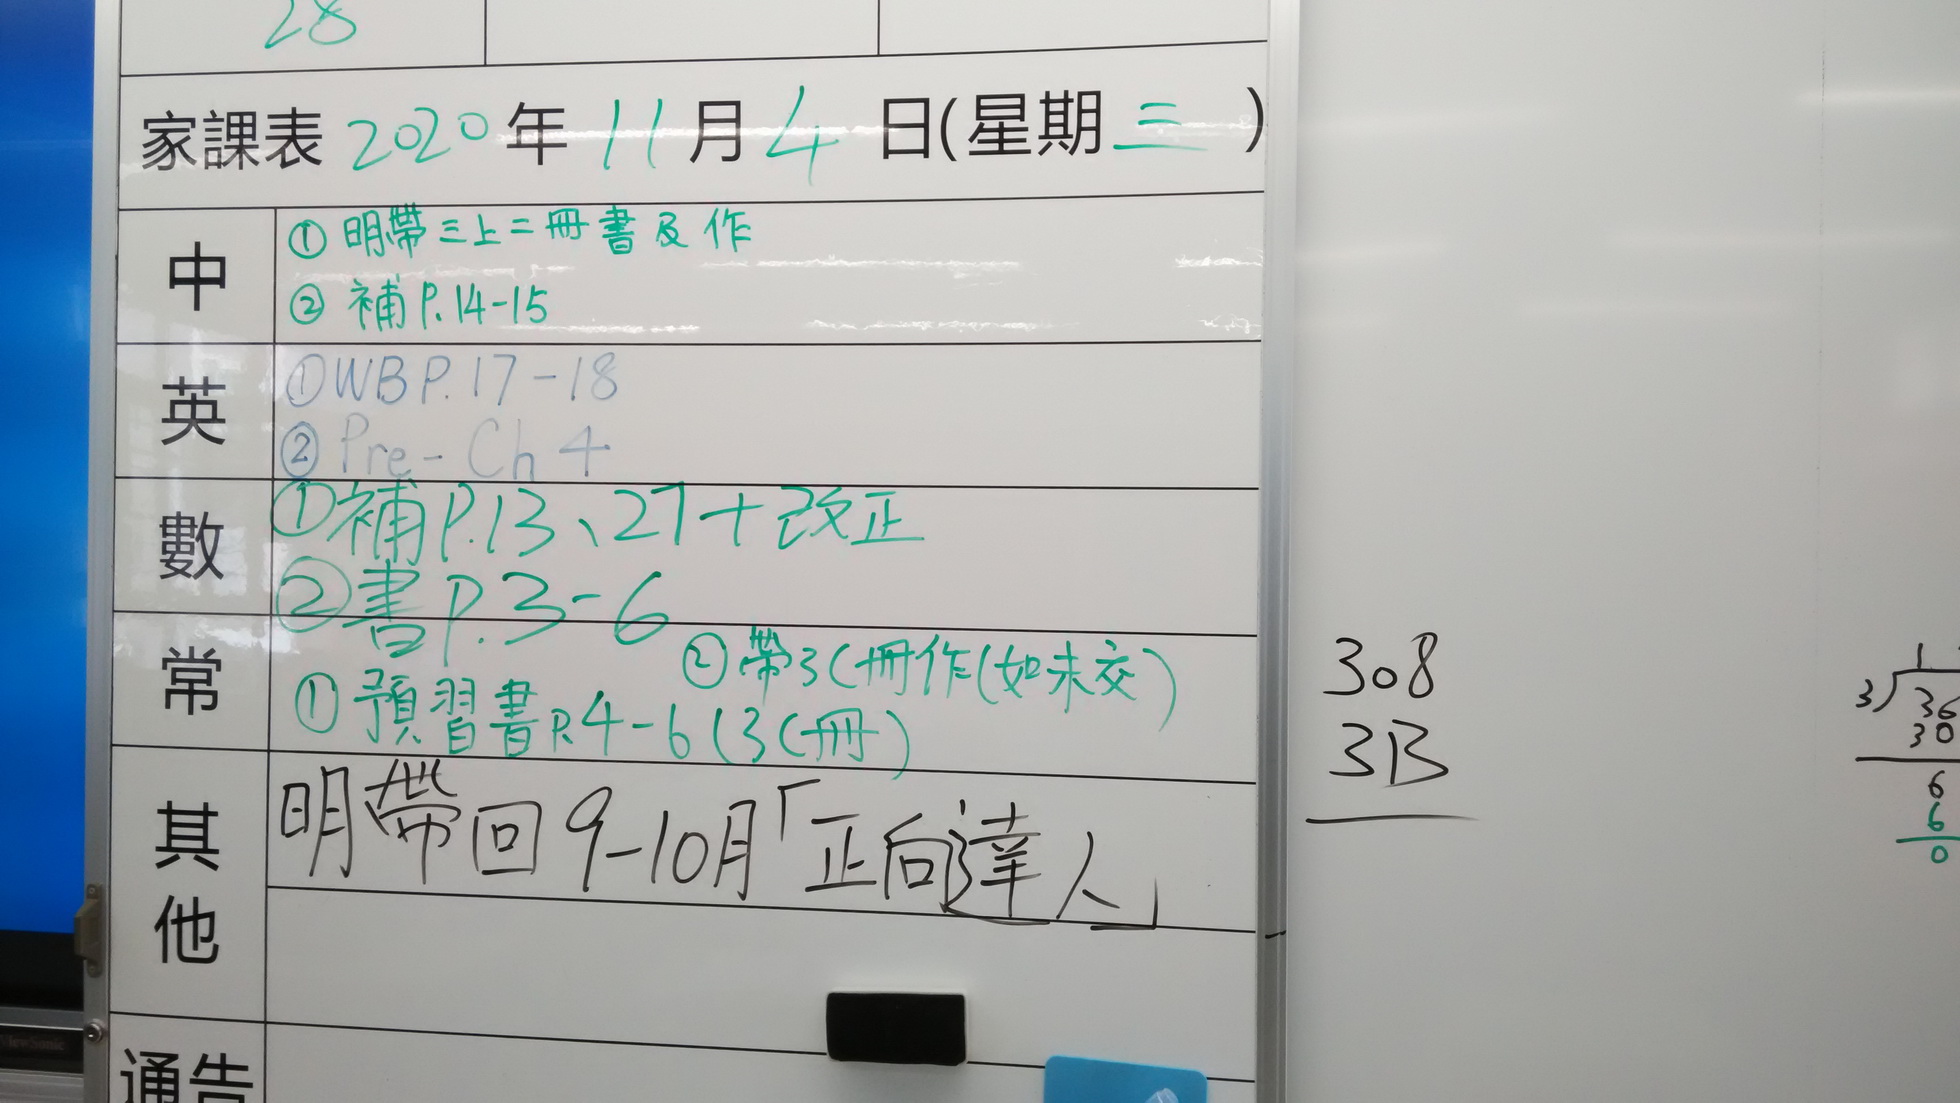 28
家課表 2020 年 11 月 4 日(星期 三 )
中
① 明帶三上二冊書及作
② 補 P.14-15
英
① WB P.17-18
② Pre-Ch 4
數
① 補 P.13、27+改正
② 書 P.3-6
常
② 帶3C冊作(如未交)
① 預習書P.4-6(3C冊)
其他
明帶回9-10月「正向達人」
通告
308
313
1
3 36
30
6
6
0
ViewSonic